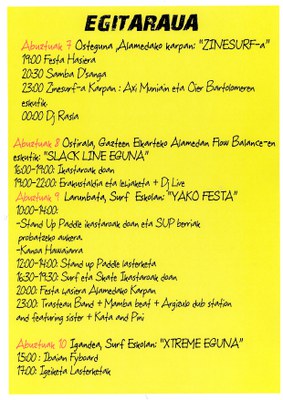 EGITARAUA
Abuztuak 7 Osteguna ,Alamedako karpan: "ZINESURF-a"
19:00 Festa Hasiera
20:30 Samba D'sanga
23:00 Zinesurf-a Karpan : Axi Muniain eta Oier Bartolomeren
eskutik
00:00 Dj Rasla
Abuztuak 8 Ostirala, Gazteen Elkarteko Alamedan Flow Balance-en
eskutik: "SLACK LINE EGUNA"
16:00-19:00: Ikastaroak doan
19:00-22:00: Erakustaldia eta lehiaketa + Dj Live
Abuztuak 9 Larunbata, Surf Eskolan: "YAKO FESTA"
10:00-14:00:
-Stand Up Paddle ikastaroak doan eta SUP berriak
probatzeko aukera.
-Kanoa Hawaiarra
12:00-14:00: Stand up Paddle lasterketa
16:30-19:30: Surf eta Skate Ikastaroak doan
20:00: Festa hasiera Alamedako Karpan
23:00: Trastean Band + Mamba beat + Argizulo dub station
and featuring sister + Kata and Pini
Abuztuak 10 Igandea, Surf Eskolan: "XTREME EGUNA"
15:00 : Ibaian Flyboard
17:00: Igeriketa Lasterketak